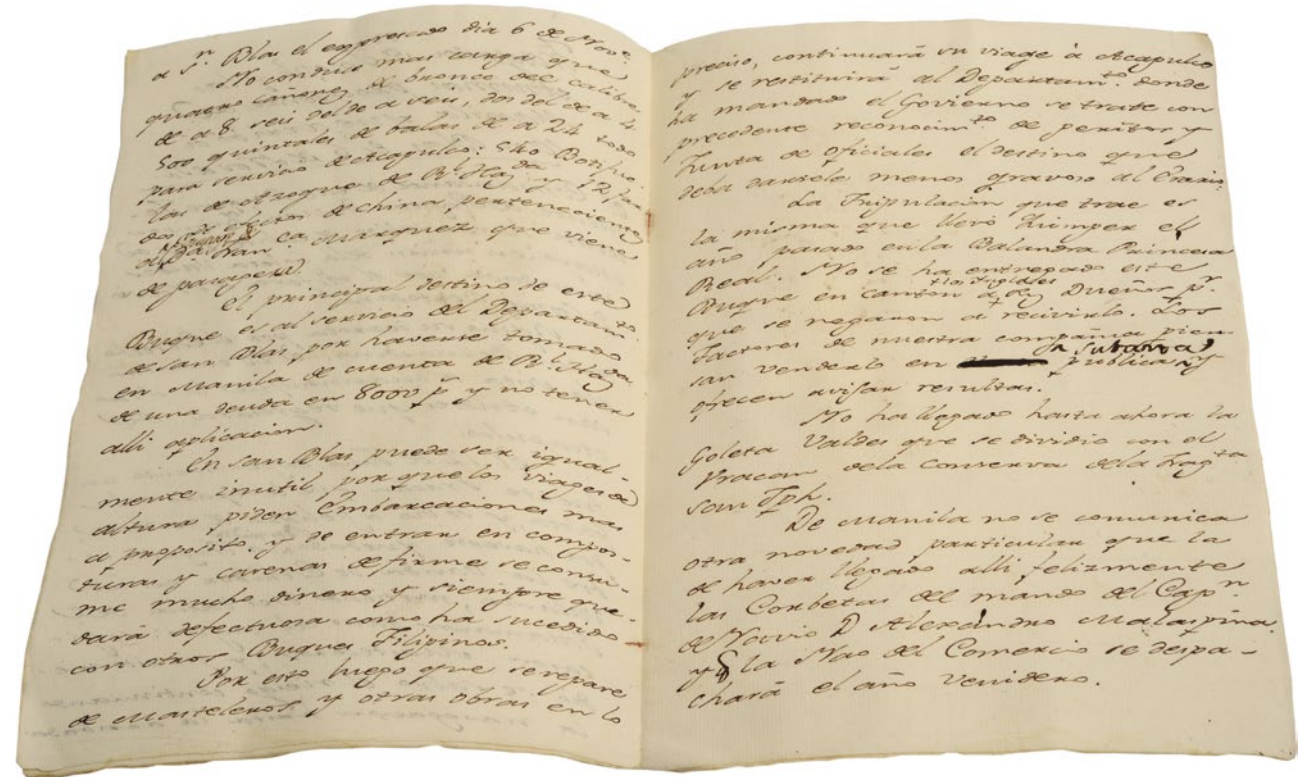 a Sn. Blas el expresado dia 6 de Nove.
No conduce mas carga que
quatro cañones de bronce del calibre
de a 8. seis del de a seis, dos del de a 4.
500 quintales de balas de a 24 todo
para servicio de Acapulco: 540 Botijue-
las de Azogue de Rl. Hazda y 12 far
dos de efectos de china, perteneciente
a Dn. Franca Marquez que viene
de pasagera.
El principal destino de este
Buque es al servicio del Departamto.
de San Blas, por haverse tomado
en Manila de cuenta de Rl. Hazda
de una deuda en 8000 ps. y no tener
alli aplicacion.
En San Blas puede ser igual-
mente inutil, porque los viages de
altura piden Embarcaciones mas
a proposito, y se entran en compos-
turas y carenas de firme se consu-
me mucho dinero y siempre que-
dará defectuosa como ha sucedido
con otros Buques Filipinos.
Por esto luego que se repare
de Masteleros y otras obras en lo
preciso, continuará su viage à Acapulco
y se restituirá al Departamto. donde
ha mandado el Govierno se trate con
precedente reconocimto. de peritos y
Junta de oficiales el destino que
deba darsele menos gravoso al Erario.
La Tripulacion que trae es
la misma que llevó Quimper el
año pasado en la Balandra Princesa
Real. No se ha entregado este
Buque en Canton a los Ingleses sus Dueños pr.
que se negaron a recivirlo. Los
Factores de nuestra compañia pien-
san venderlo en subasta publica, y
ofrecen avisar resultas.
No ha llegado hasta ahora la
Goleta Valdes que se dividió con el
Vracan de la conserva de la Fragta.
San Jph.
De Manila no se comunica
otra novedad particular que la
de haver llegado alli felizmente
las Corbetas del mando del Capn.
de Navio D Alexandro Malaspina.
y la Nao del Comercio se despa-
chará el año venidero.